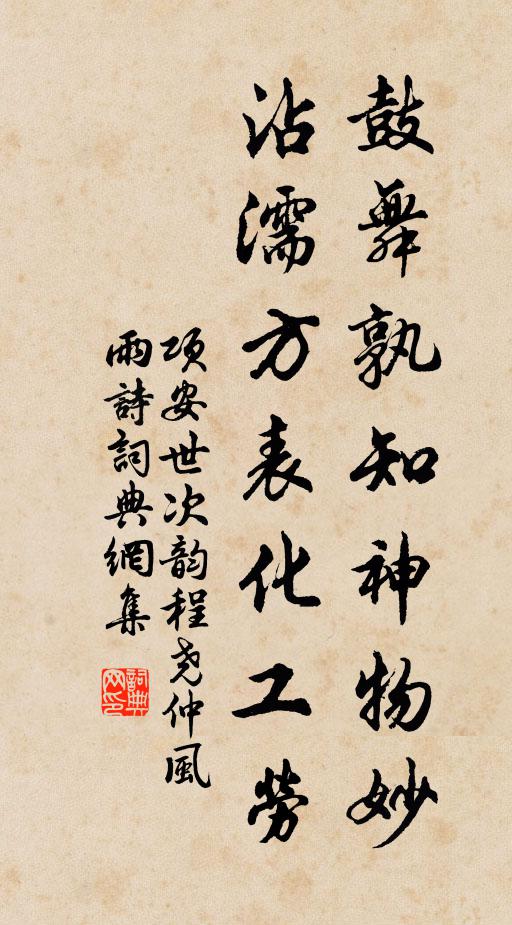 鼓舞孰知神物妙
沾濡方表化工勞
項安世次韵程尭仲風
雨詩詞典網集
詞典
网印